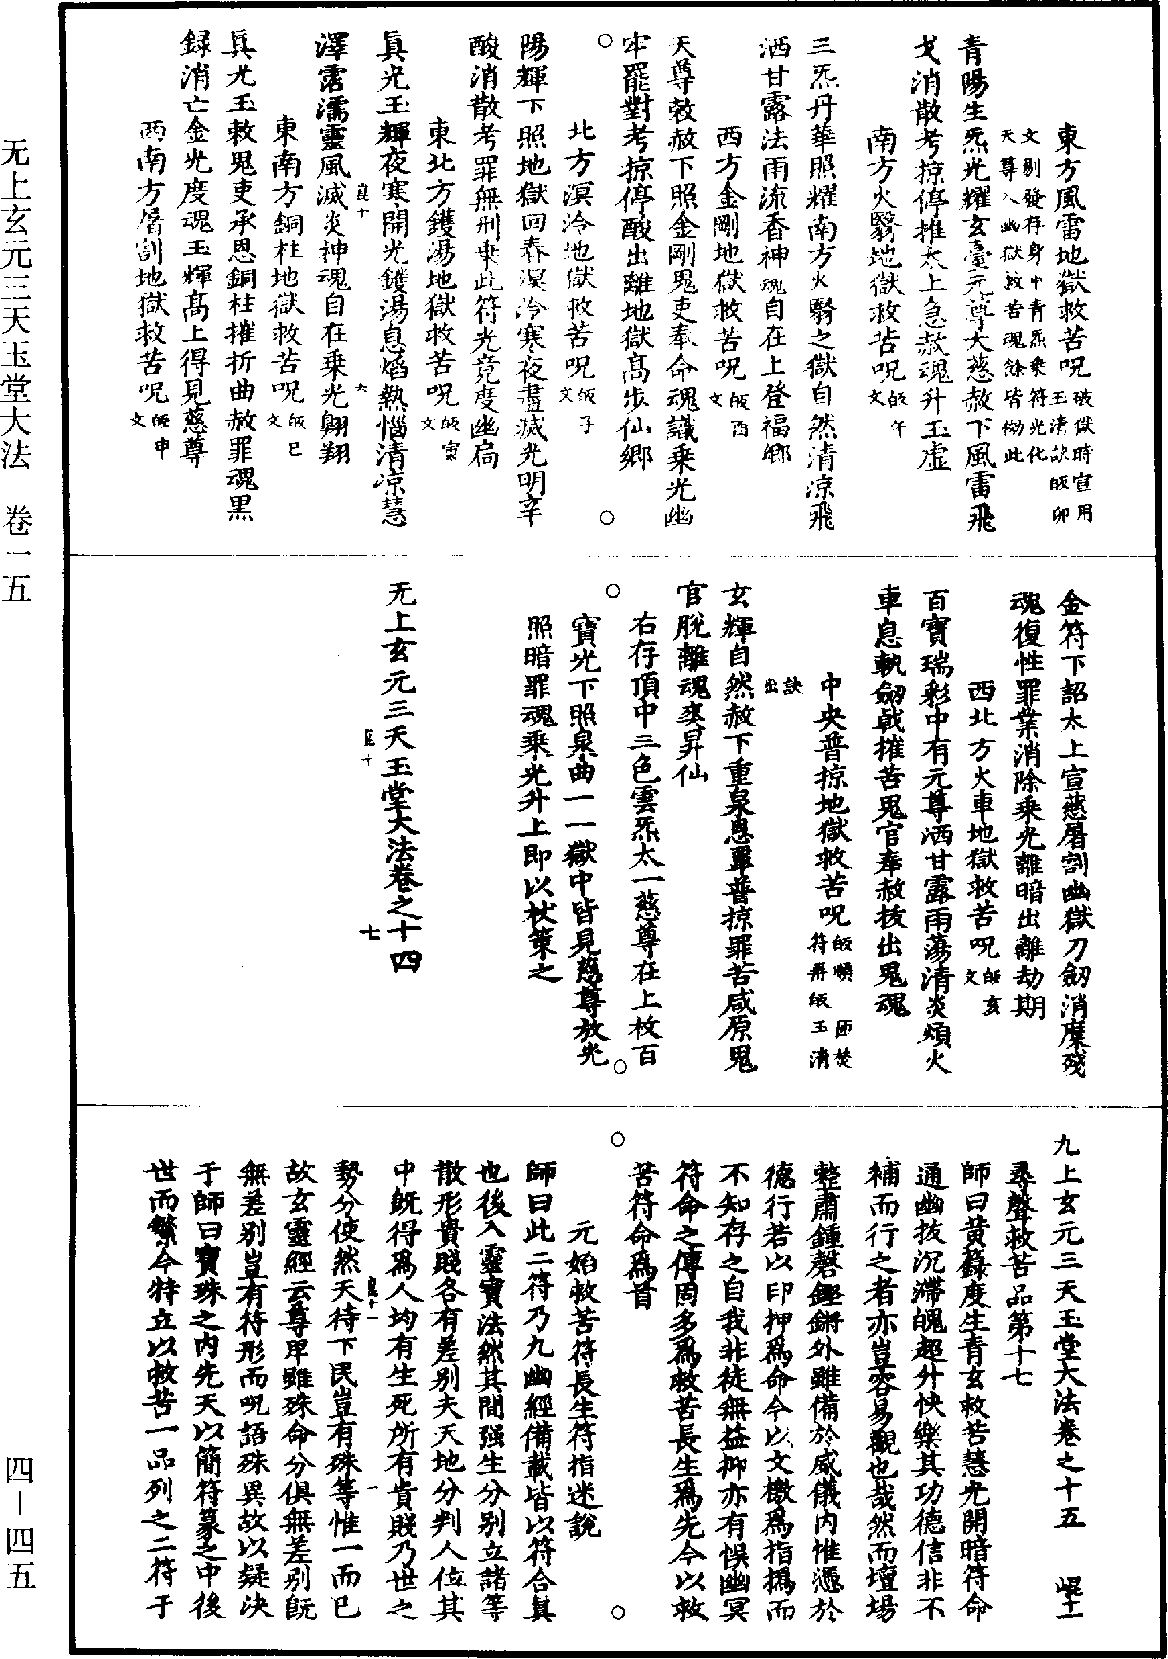 東方風雷地獄救苦呪破獄時宣用玉清訣皈卯
文剔發存身中青炁乘符光化
天尊入幽獄救苦魂餘皆倣此
青陽生炁光耀玄臺元尊大慈赦下風雷飛
戈消散考掠停推太上急赦魂升玉虛
南方火翳地獄救苦呪皈午文
三炁丹華照耀南方火翳之獄自然清凉飛
洒甘露法雨流香神魂自在上登福鄉
西方金剛地獄救苦呪皈酉文
天尊敕赦下照金剛鬼吏奉命魂識乘光幽
牢罷對考掠停酸出離地獄高步仙鄉
北方溟泠地獄救苦呪皈子文
陽輝下照地獄回春溟泠寒夜盡滅光明辛
酸消散考罪無刑乘此符光竟度幽扃
東北方鑊湯地獄救苦呪皈寅文
真光玉輝夜寒開光鑊湯息焰熱惱清凉慧
澤霑濡靈風滅炎神魂自在乘光翱翔
東南方銅柱地獄救苦呪皈巳文
真光玉敕鬼吏承恩銅柱摧折曲赦罪魂黑
録消亡金光度魂玉輝高上得見慈尊
西南方屠割地獄救苦呪皈申文
金符下詔太上宣慈屠割幽獄刀劒消糜殘
魂復性罪業消除乘光離暗出離劫期
西北方火車地獄救苦呪皈亥文
百寶瑞彩中有元尊洒甘露雨蕩清炎煩火
車息軌劒戟摧苦鬼官奉赦拔出鬼魂
中央普掠地獄救苦呪皈順符再皈玉清訣出
玄輝自然赦下重泉恩畢普掠罪苦咸原鬼
官脫離魂爽昇仙
右存頂中三色雲炁太一慈尊在上枚百
寶光下照泉曲一一獄中皆見慈尊放光
照暗罪魂乘光升上即以杖策之
无上玄元三天玉堂大法卷之十四
七
九上玄元三天玉堂大法卷之十五
尋聲救苦品第十七
師曰黄籙度生青玄救苦慧光開暗符命
通幽拔沉滯魄超外快樂其功德信非不
補而行之者亦豈容易觀也哉然而壇場
整肅鍾磬鏗鏘外雖備於威儀内惟憑於
德行若以印押爲命令以文檄爲指撝而
不知存之自我非徒無益抑亦有悮幽冥
符命之傳固多爲救苦長生爲先今以救
苦符命爲首
元始救苦符長生符指迷說
師曰此二符乃九幽經備載皆以符合真
也後入靈寳法然其間强生分别立諸等
散形貴賤各有差别夫天地分判人位其
中旣得爲人均有生死所有貴賤乃世之
勢分使然天待下民豈有殊等惟一而已
故玄靈經云尊卑雖殊命分俱無差别旣
無差别豈有符形而呪語殊異故以疑决
于師曰寶珠之内先天以簡符篆之中後
世而繁今特立以救苦一品列之二符于
无上玄元三天玉堂大法　卷一五
四－四五